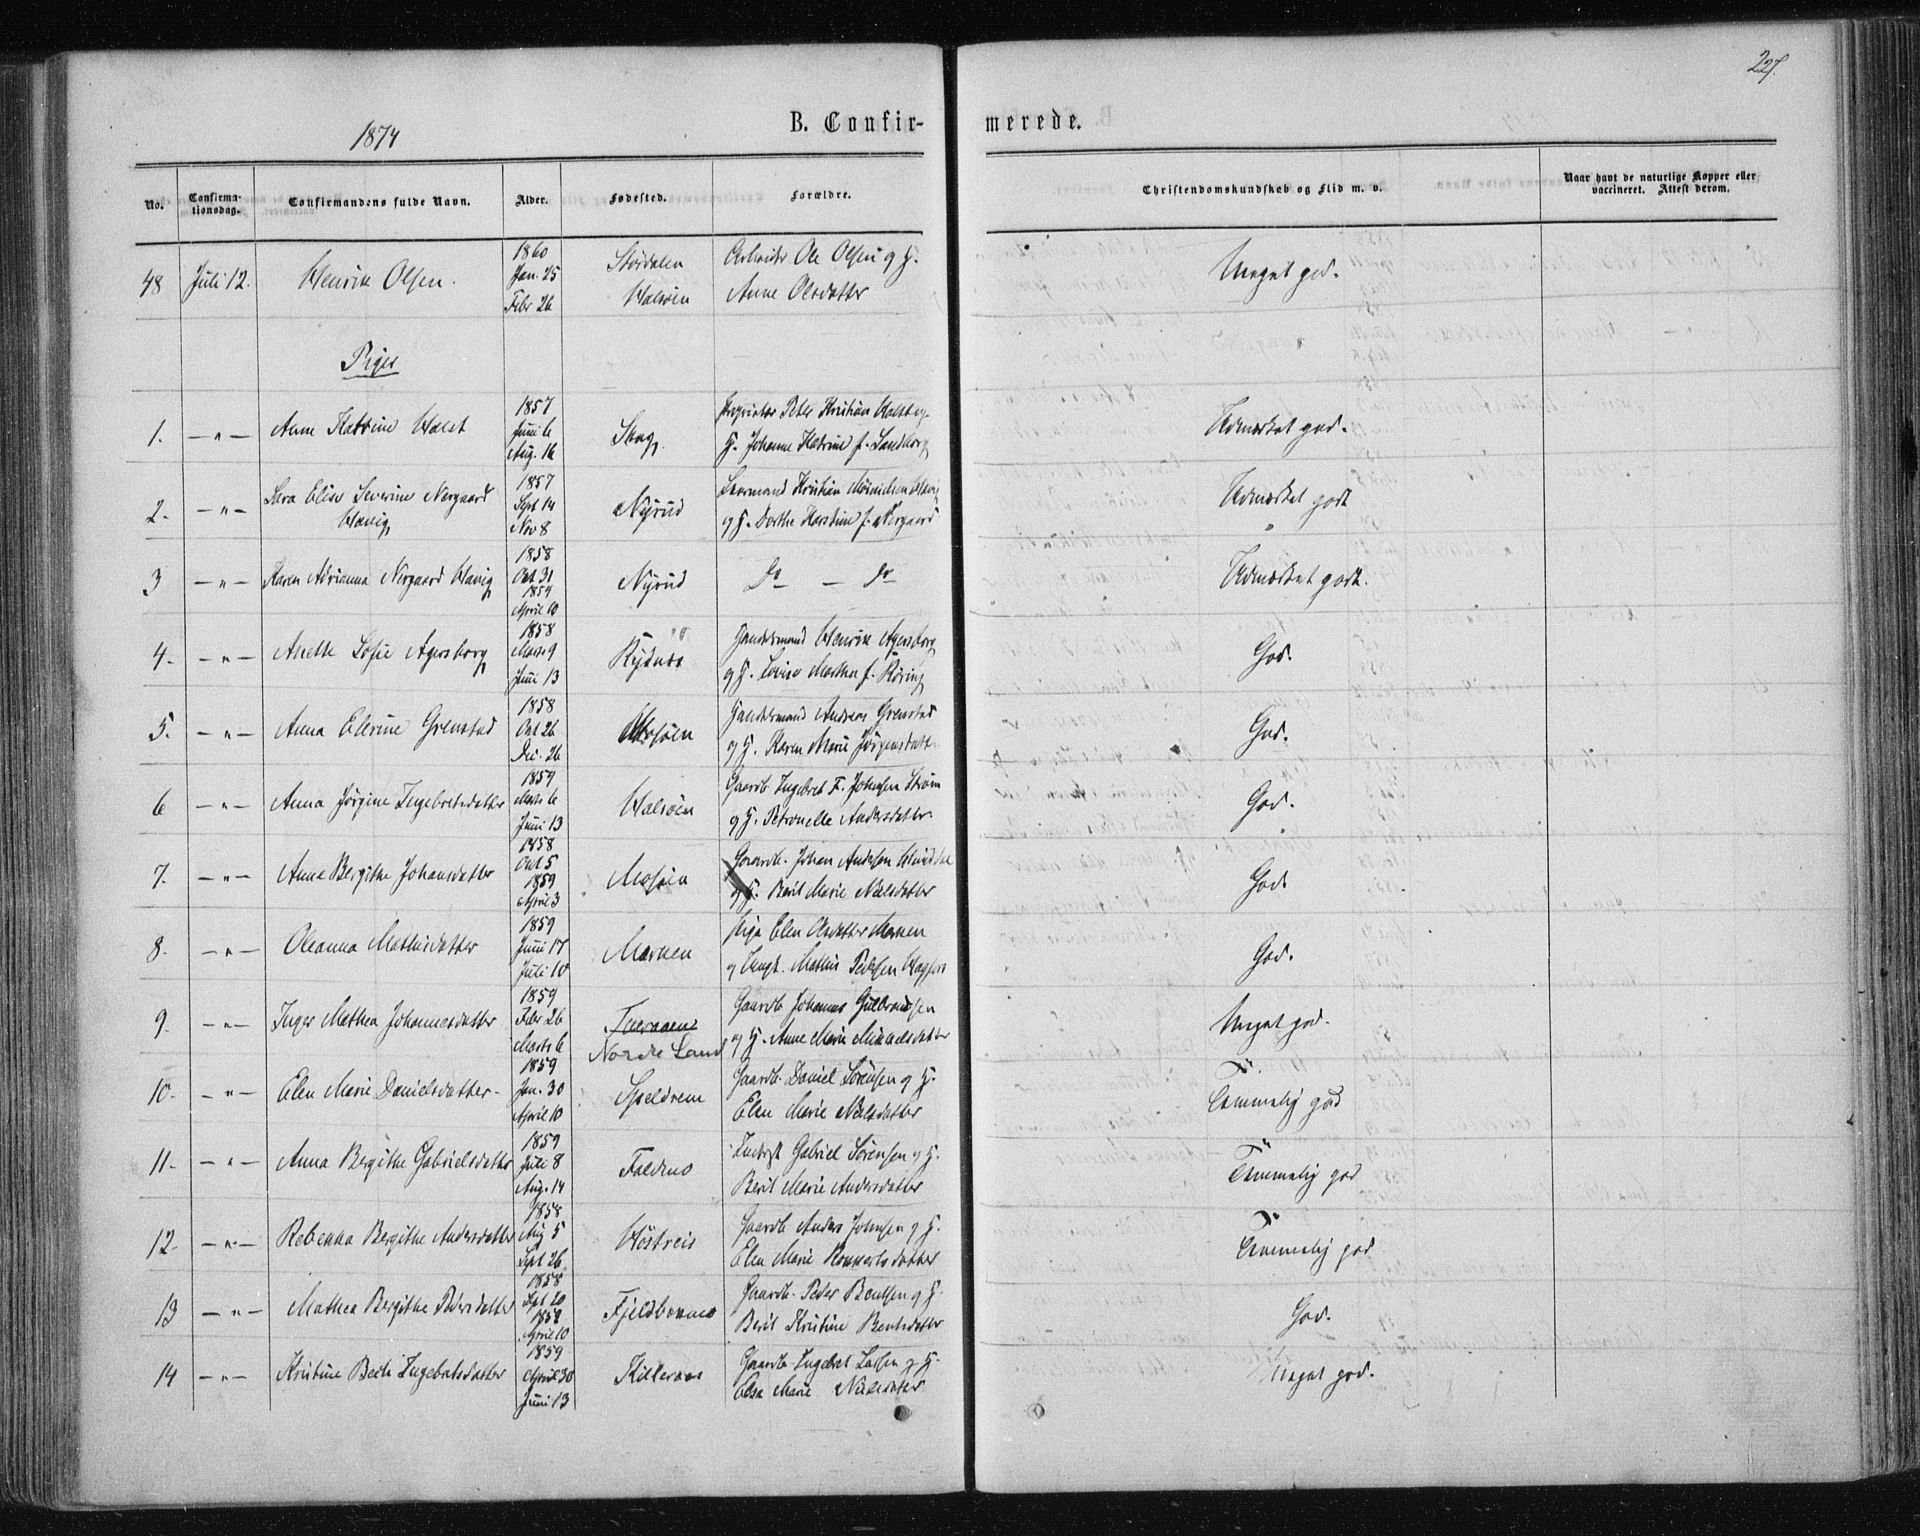 227.
1874
B. Confirmerede.
No. Confirmationsdag. Confirmandens fulde Navn. Alder. Fødested. Forældre. Christendomskundskab og Flid m. v. Naar havt de naturlige Kopper eller vaccineret. Attest derom.
48 Juli 12. Henrik Olsen. 1860 Jan. 25 Febr 26 Stordalen Halsöen Arbeider Ole Olsen og H. Anne Olsdatter Meget god.
Piger
1. —"— Anne Katrine Holst 1857 Juni 6 Aug. 16 Skog Proprietær Peter Kristian Holst og H. Johanne Katrine f. Sandberg Udmærket god.
2. —"— Sara Elise Severine Nergaard Havig 1857 Sept 14 Nov 8 Nyrud Kristian Havig og H. Dorthe f. Nergaard Udmærket godt
3 —"— Karen Adrianna Nergaard Havig 1858 Oct 31 1859 April 10 Nyrud Do — Do Udmærket godt.
4. —"— Anette Sofie Agersborg 1858 Marts 9 Juni 13 Handelsmand Henrik Agersborg og H. Lovise Marthea f. Röring God.
5. —"— Anna Elerine Grenstad 1858 Oct 26 Dec. 26 Mosjöen Handelsmand Andreas Grenstad og H. Karen Marie Jörgensdatt. God.
6 —"— Anna Jörgine Ingebretsdatter 1859 Marts 6 Juni 13 Halsöen Gaardb Ingebret F. Johnsen Ström og H. Petronelle Andersdatter. God.
7. —"— Anna Bergithe Johansdatter 1858 Oct 5 1859 April 3 Mosjöen Gaardb. Johan Andersen og H. Berit Marie Nielsdatter God
8. —"— Oleanna Mathisdatter 1859 Juni 17 Juli 10 Marken Pige Elen Olsdatter Marken og Ungk. Mathis Pedersen God.
9. —"— Inger Mathea Johannesdatter 1859 Febr 26 Marts 6 Tveraaen Nordre Land Gaardb Johannes Gulbrandsen og H. Anne Marie Mikkelsdatter Meget god.
10. —"— Elen Marie Danielsdatter. 1859 Jan. 30 April 10 Speldrem Gaardb. Daniel Sörensen og H. Elen Marie Nielsdatter Temmelig god
11. —"— Anna Bergithe Gabrielsdatter 1859 Juli 8 Aug. 14 Gabriel Sörensen og H. Berit Marie Andersdatter Temmelig god
12. —"— Rebekka Bergithe Andersdatter 1858 Aug 5 Sept 26 Gaardb Anders Johnsen og H. Elen Marie Temmelig god
13 —"— Mathea Bergithe Pedersdatter 1858 Sept 20 April 10 Gaardb. Peder Bentsen og H. Berit Kristine Bentsdatter God.
14 —"— Kristine Berit Ingebretsdatter 1859 April 30 Juni 13 Gaardb. Ingebret Larsen og H. Elsa Marie Nielsdatter Meget god.